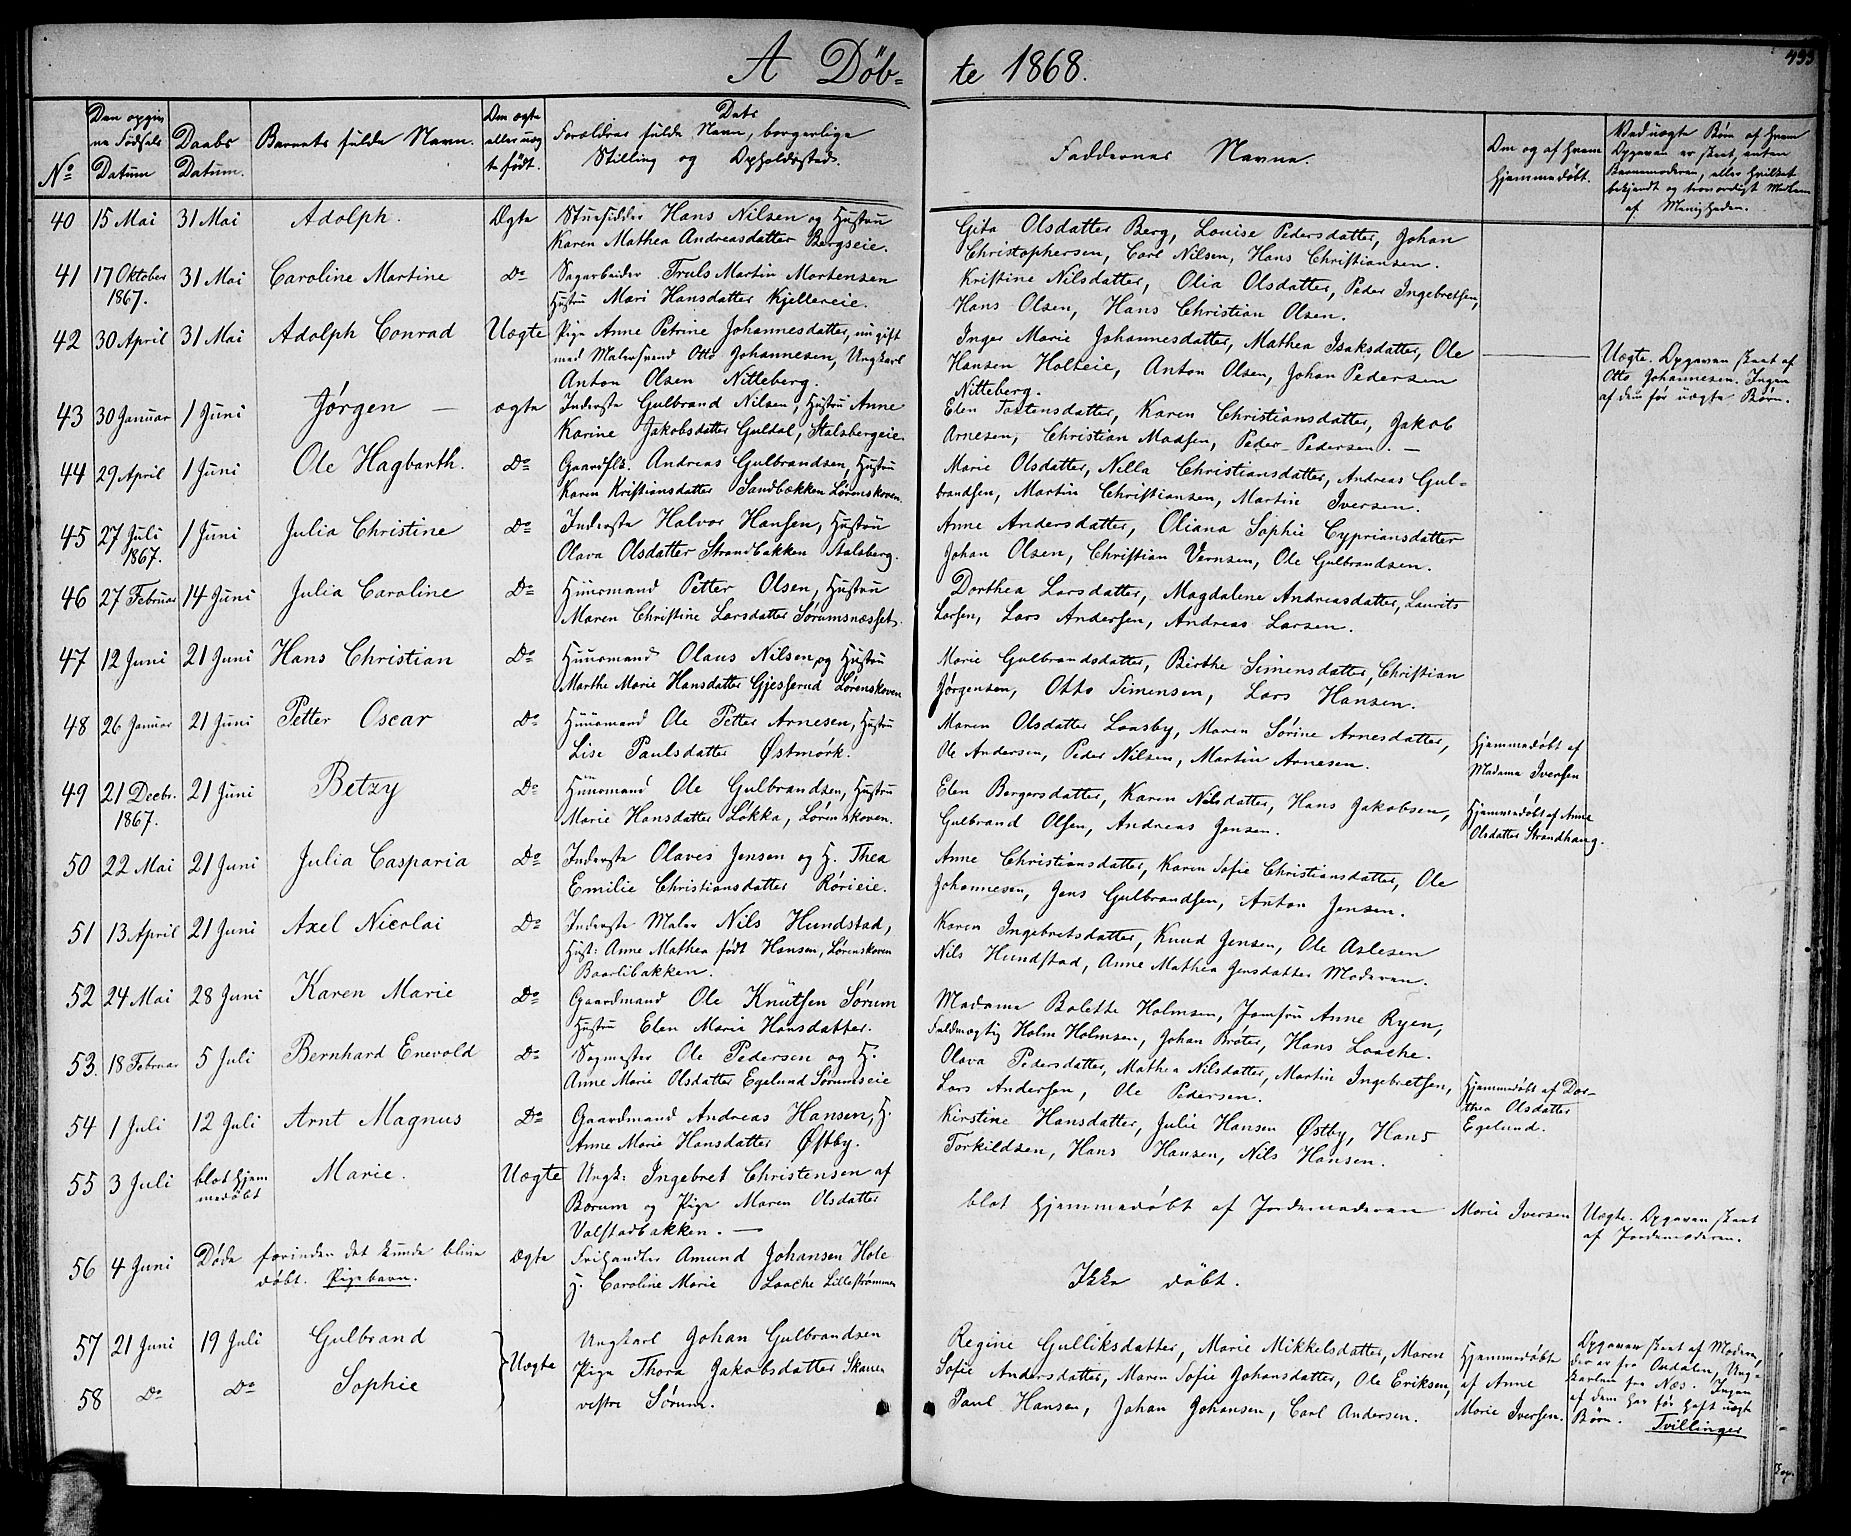 A Døb=
te 1868.
493
No
Den opgiv
ne Fødsels
Datum
Daabs
Datum.
Barnets fulde Navn.
Om ægte
eller uæg
te født.
Dets
Forældres fulde Navn, borgerlige
Stilling og Opholdssted.
Faddernes Navne.
Om og af hvem
hjemmedøbt.
Ved uægte Børn af hvem
Opgaven er skeet, enten
Barnemoderen, eller hvilket
bekjendt og troværdigt Medlem
af Menigheden.
40 15 Mai 31 Mai Adolph. Ægte
Huusfolder Hans Nilsen og Hustru
Karen Mathea Andreasdatter Bergseie.
Gita Olsdatter Berg, Louise Pedersdatter, Johan
Christophersen, Carl Nilsen, Hans Christiansen.
41 17 Oktober 31 Mai Caroline Martine Do
1867.
Sagarbeider Truls Martin Mortensen
Hustru Mari Hansdatter Kjellereie.
Kristine Nilsdatter, Olia Olsdatter, Peder Ingebretsen,
Hans Olsen, Hans Christian Olsen.
42 30 April 31 Mai Adolph Conrad Uægte
Pige Anne Petrine Johannesdatter, nu gift
med Malersvend Otto Johannesen, Ungkarl
Anton Olsen Nitteberg.
Inger Marie Johannesdatter, Mathea Isaksdatter, Ole
Hansen Holteie, Anton Olsen, Johan Pedersen
Nitteberg.
Uægte. Opgaven skeet af
Otto Johannesen. Ingen
af dem før uægte Børn.
43 30 Januar 1 Juni Jørgen — ægte
Inderste Gulbrand Nilsen, Hustru Anne
Karine Jakobsdatter Guldal, Stalsbergeie
Elen Tostensdatter, Karen Christiansdatter, Jakob
Arnesen, Christian Madsen, Peder Pedersen. —
44 29 April 1 Juni Ole Hagbarth. Do
Gaardflb. Andreas Gulbrandsen, Hustru
Karen Kristiansdatter Sandbækken Lørenskoven.
Marie Olsdatter, Nilla Christiansdatter, Andreas Gul=
brandsen, Martin Christiansen, Martin Iversen.
45 27 Juli 1 Juni Julia Christine Do
1867.
Inderste Halvor Hansen, Hustru
Olava Olsdatter Strandbakken Stalsberg.
Anne Andersdatter, Oliana Sophie Cypriansdatter
Johan Olsen, Christian Vernsen, Ole Gulbrandsen.
46 27 Februar 14 Juni Julia Caroline Do
Huusmand Petter Olsen, Hustru
Maren Christine Larsdatter Sørumsnæsset.
Dorthea Larsdatter, Magdalene Andreasdatter, Laurits
Larsen, Lars Andersen, Andreas Larsen.
47 12 Juni 21 Juni Hans Christian Do
Huusmand Olaus Nilsen og Hustru
Marthe Marie Hansdatter Gjesserud Lørenskoven
Marie Gulbrandsdatter, Birthe Simensdatter, Christian
Jørgensen, Otto Simensen, Lars Hansen.
48 26 Januar 21 Juni Petter Oscar Do
Huusmand Ole Petter Arnesen, Hustru
Lise Paulsdatter Østmørk.
Maren Olsdatter Loasby, Maren Sørine Arnesdatter,
Ole Andersen, Peder Nilsen, Martin Arnesen.
Hjemmedøbt af
Madame Iversen
49 21 Decbr. 21 Juni Betzy Do
1867.
Huusmand Ole Gulbrandsen, Hustru
Marie Hansdatter Løkka, Lørenskoven.
Elen Bergersdatter, Karen Nilsdatter, Hans Jakobsen,
Gulbrand Olsen, Andreas Jensen.
Hjemmedøbt af Anne
Olsdatter Strandhaug.
50 22 Mai 21 Juni Julia Casparia Do
Inderste Olaves Jensen og H. Thea
Emilie Christiansdatter Rørieie.
Anne Christiansdatter, Karen Sofie Christiansdatter, Ole
Johannesen, Jens Gulbrandsen, Anton Jensen.
51 13 April 21 Juni Axel Nicolai Do
Inderste Maler Nils Hundstad,
Hust: Anne Mathea født Hansen, Lørenskoven
Baarlibakken.
Karen Ingebretsdatter, Knud Jensen, Ole Aslesen
Nils Hundstad, Anne Mathea Jensdatter Moderen.
52 24 Mai 28 Juni Karen Marie Do
Gaardmand Ole Knutsen Sørum
Hustru Elen Marie Hansdatter.
Madame Bolette Holmsen, Jomfru Anne Ryen,
Fuldmægtig Holm Holmsen, Johan Brøter, Hans Laache.
53. 18 Februar 5 Juli Bernhard Enevold Do
Sagmester Ole Pedersen og H.
Anne Marie Olsdatter Egelund Sørumseie
Olava Pedersdatter, Mathea Nilsdatter, Martin Ingebretsen,
Lars Andersen, Ole Pedersen.
Hjemmedøbt af Dor-
thea Olsdatter
Egelund.
54 1 Juli 12 Juli Arnt Magnus Do
Gaardmand Andreas Hansen, H.
Anne Marie Hansdatter Østby.
Kirstine Hansdatter, Julie Hansen Østby, Hans
Torkildsen, Hans Hansen, Nils Hansen.
55 3 Juli blot hjem Marie. Uægte
medøbt
Ungk: Ingebret Christensen af
Børum og Pige Maren Olsdatter
Valstadbakken. —
blot hjemmedøbt af Jordemoderen Marie Iversen
Uægte. Opgaven skeet
af Jordemoderen.
56 4 Juni Døde forinden det kunde blive Ægte
døbt. Pigebarn.
Frihandler Amund Johansen Hole
H. Caroline Marie Laache Lillestrømmen
Ikke døbt.
57 21 Juni 19 Juli Gulbrand
58 Do Do Sophie
Uægte
Ungkarl Johan Gulbrandsen
Pige Thora Jakobsdatter Skauen
vestre Sørum.
Regine Gulliksdatter, Marie Mikkelsdatter, Maren
Sofie Andersdatter, Maren Sofie Johansdatter, Ole Eriksen,
Paul Hansen, Johan Johansen, Carl Andersen.
Hjemmedøbte
af Anne
Marie Iversen.
Opgaven skeet af Moderen,
der er fra Ovdalen, Ung-
karlen fra Næs. Ingen
af dem har før havt uægte
Børn. Tvillinger